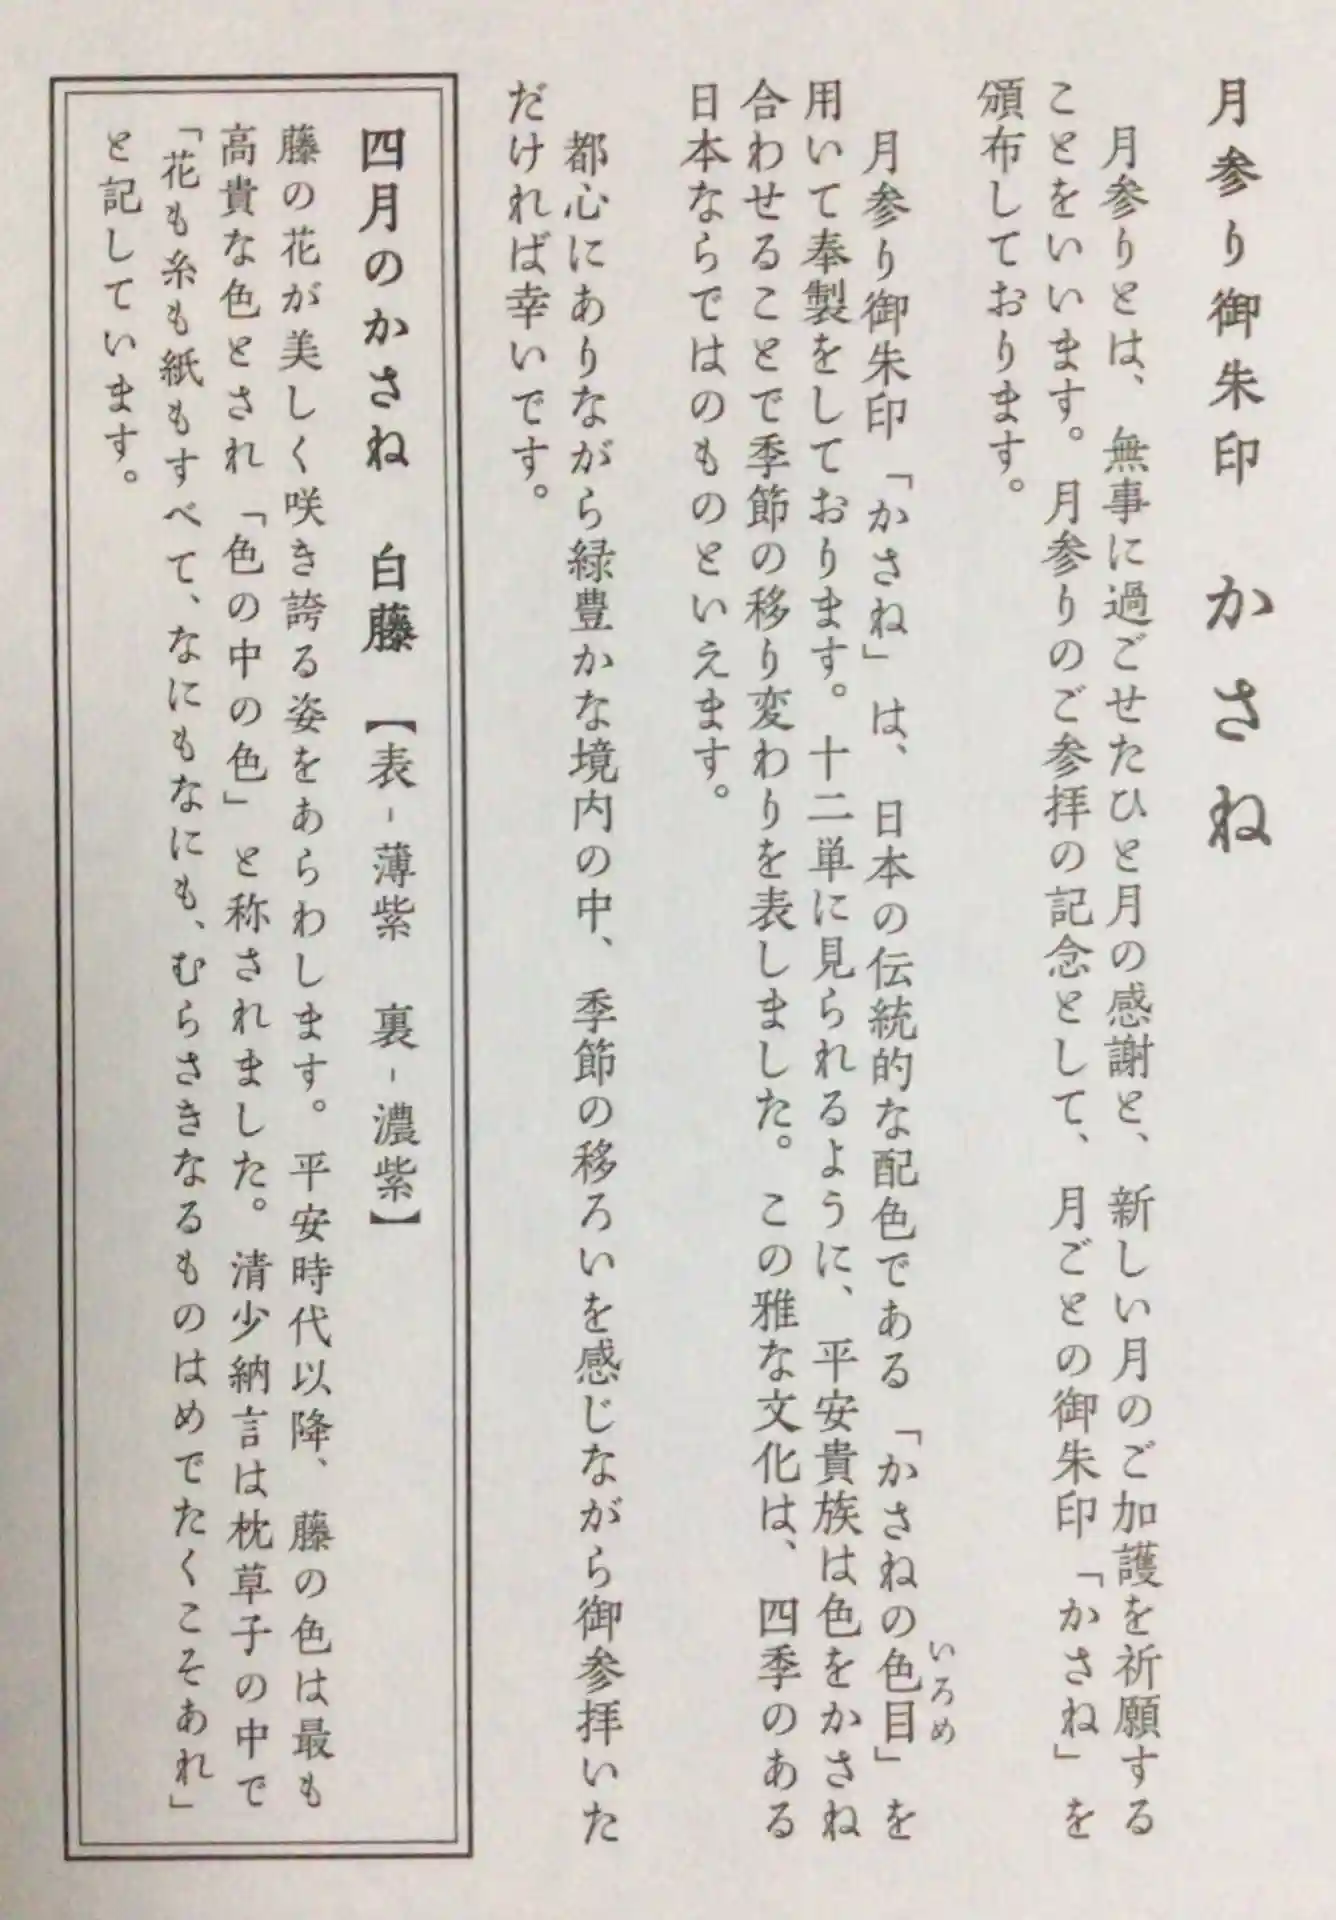 月参り御朱印 かさね
月参りとは、無事に過ごせたひと月の感謝と、新しい月のご加護を祈願する
ことをいいます。月参りのご参拝の記念として、月ごとの御朱印「かさね」を
頒布しております。
月参り御朱印「かさね」は、日本の伝統的な配色である「かさねの色目」を
いろめ
用いて奉製をしております。十二単に見られるように、平安貴族は色をかさね
合わせることで季節の移り変わりを表しました。この雅な文化は、四季のある
日本ならではのものといえます。
都心にありながら緑豊かな境内の中、季節の移ろいを感じながら御参拝いた
だければ幸いです。
四月のかさね 白藤 【表-薄紫 裏-濃紫】
藤の花が美しく咲き誇る姿をあらわします。平安時代以降、藤の色は最も
高貴な色とされ「色の中の色」と称されました。清少納言は枕草子の中で
「花も糸も紙もすべて、なにもなにも、むらさきなるものはめでたくこそあれ」
と記しています。